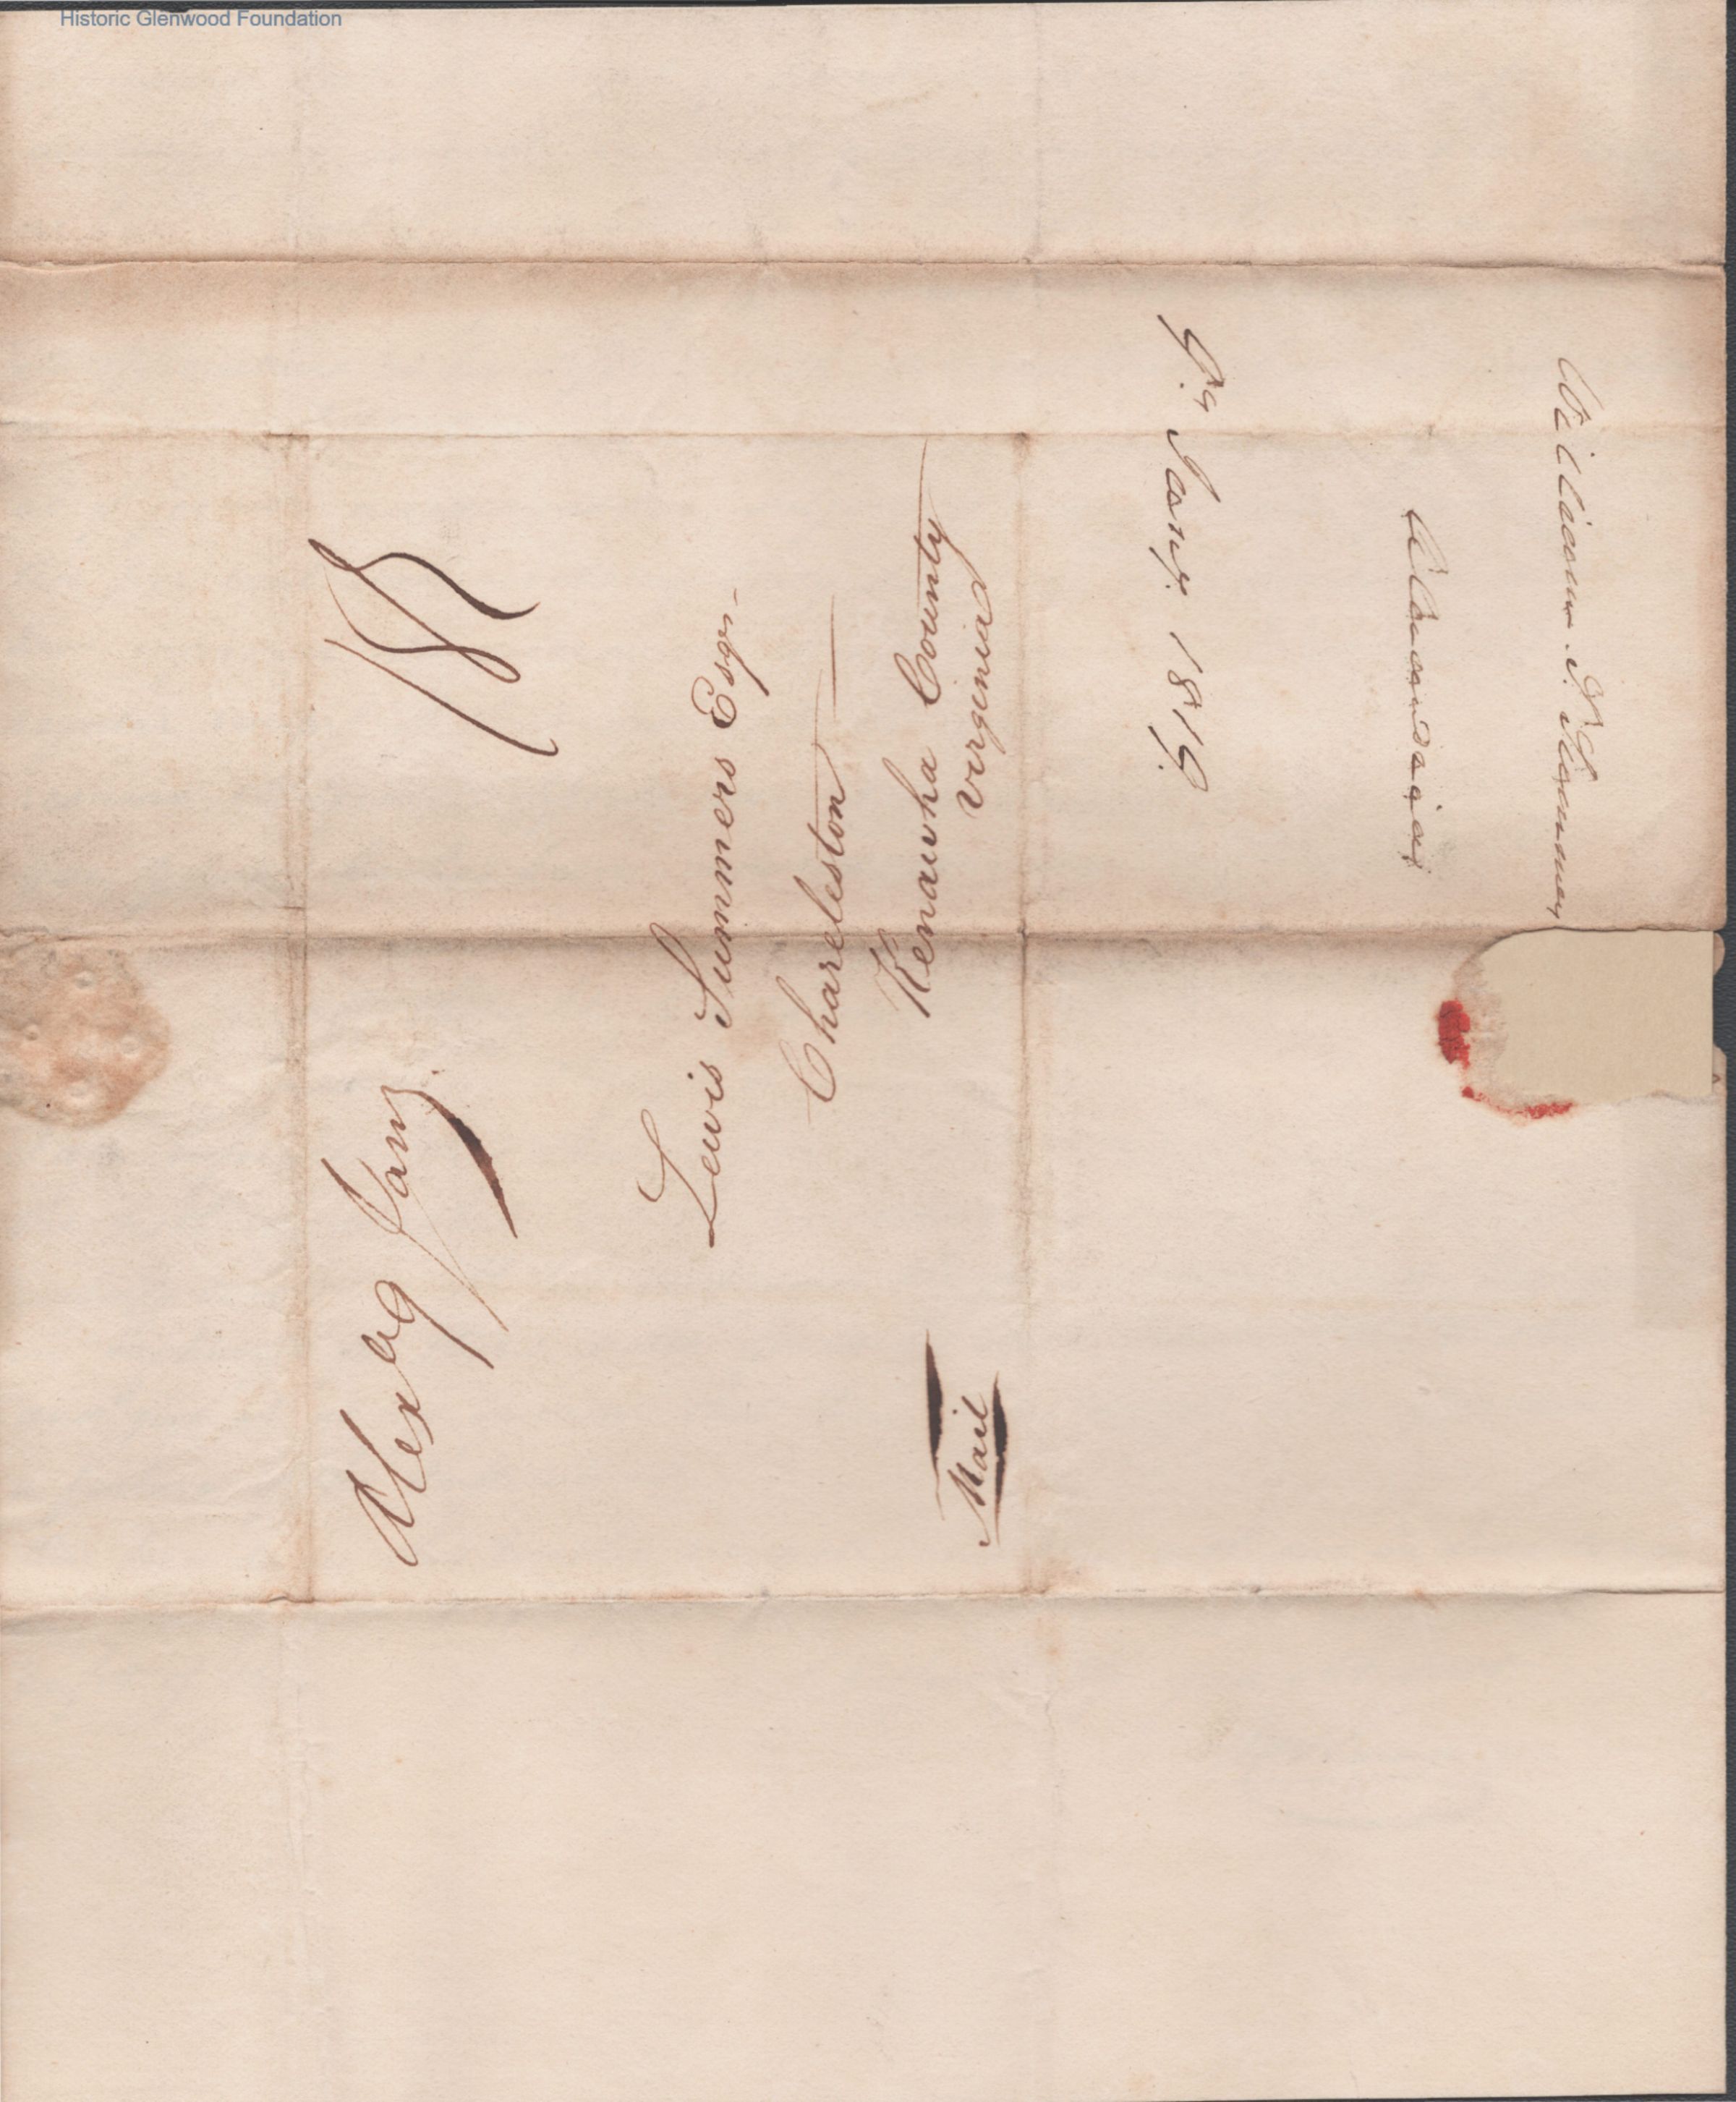 Historic Glenwood Foundation
Alexa 9 Jany
18
Lewis Summers Esqr-
Chareleston
Kenawha County
Virginia
Mail
William
Alexandria
9th Jany. 1819.